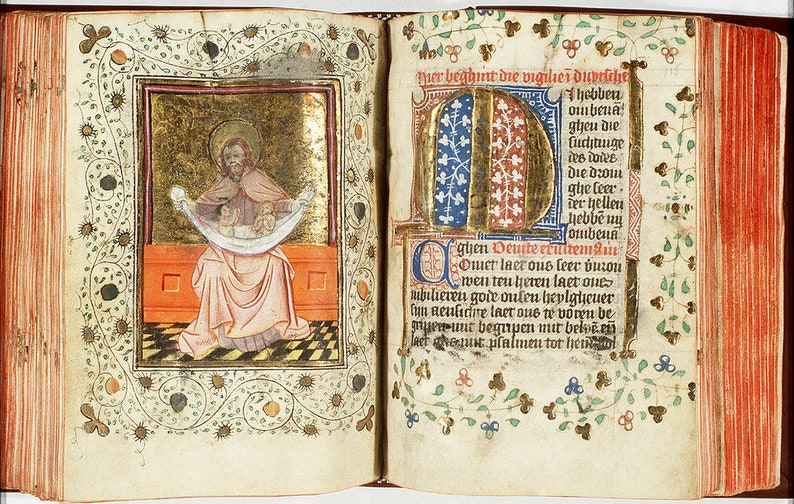 Hier beghint die vigilien̄ Duytsche
116
M I hebben
ombeuā
ghen die
suchtinge
des dodes
die droui
ghe seer
er hellen
hebbē mi
ombeuā
ghen Venite exultem9
Comet laet ons seer vrou
wen ten heren laet ons
iubilieren gode onsen heylgheuer
syn aensichte laet ons te voren be
gripen mit begripen mit belyē eñ
laet ons mit psalmen tot hem